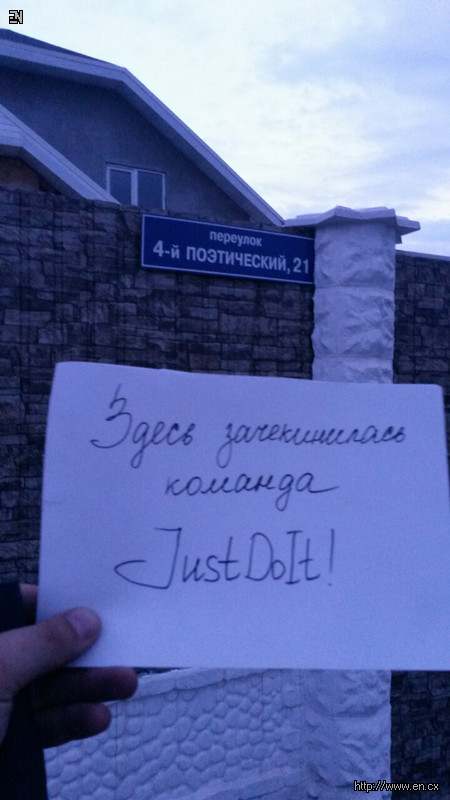 EN
переулок
4-й ПОЭТИЧЕСКИЙ, 21
Здесь зачекинилась
команда
JustDoIt!
http://www.en.cx